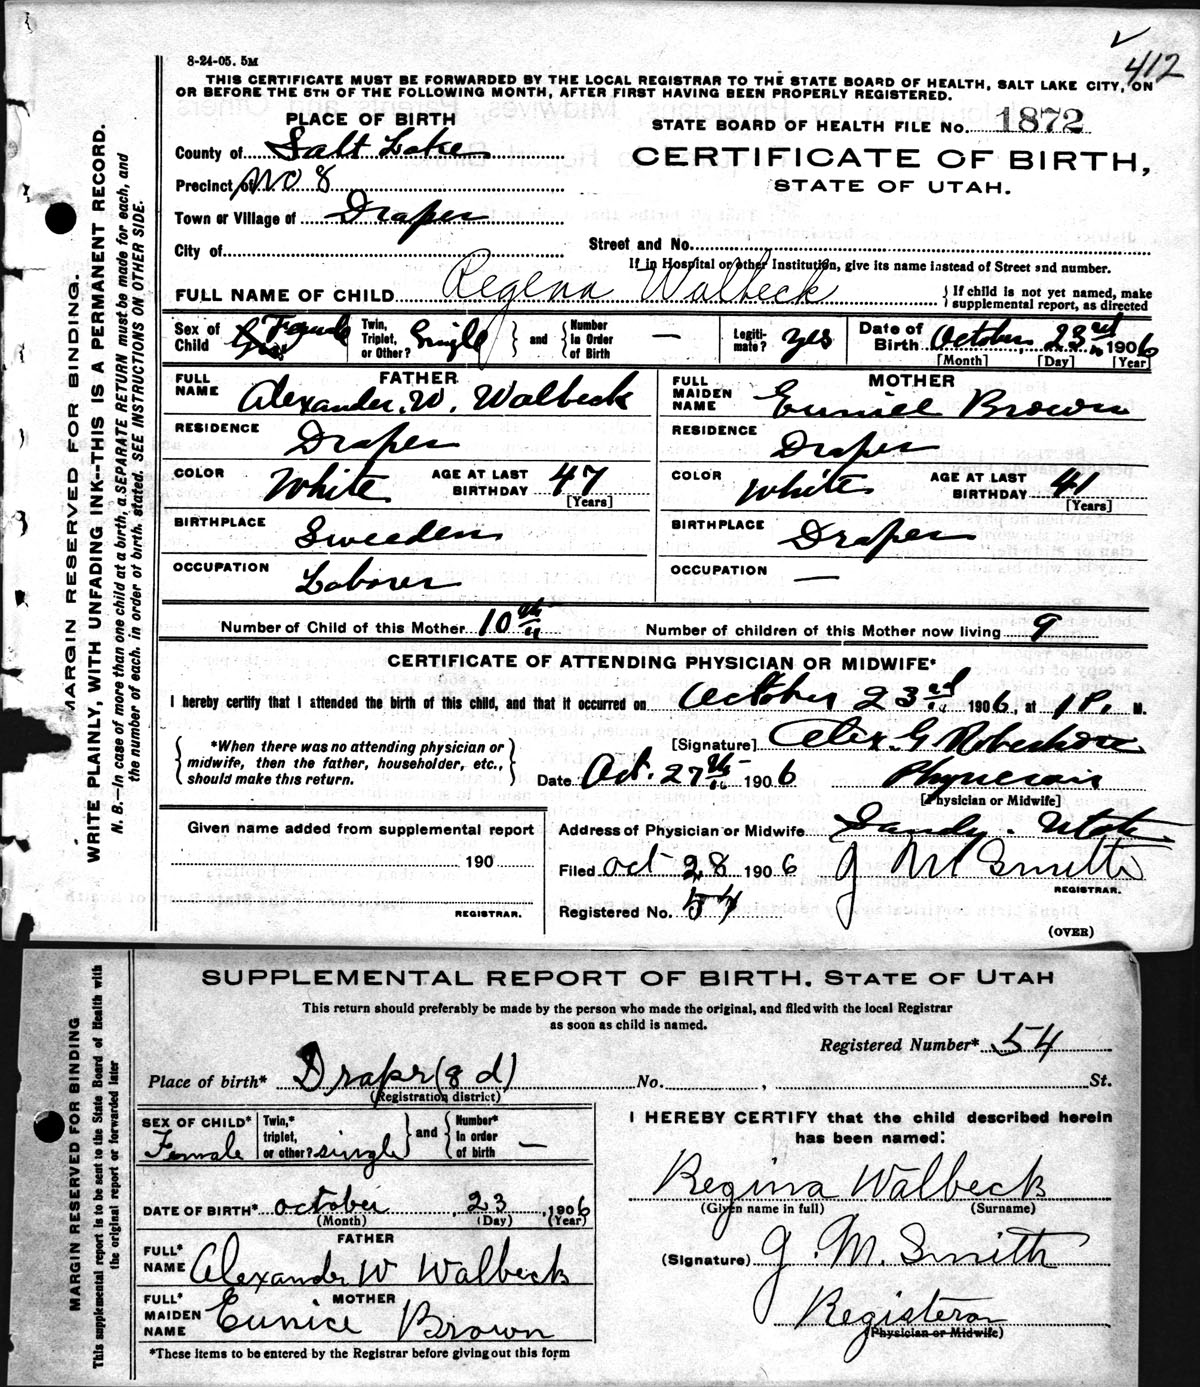 412
8-24-05. 5M
THIS CERTIFICATE MUST BE FORWARDED BY THE LOCAL REGISTRAR TO THE STATE BOARD OF HEALTH, SALT LAKE CITY, ON
OR BEFORE THE 5TH OF THE FOLLOWING MONTH, AFTER FIRST HAVING BEEN PROPERLY REGISTERED.
PLACE OF BIRTH
STATE BOARD OF HEALTH FILE No. 1872
County of Salt Lake
CERTIFICATE OF BIRTH,
STATE OF UTAH.
Precinct of No 8
Town or Village of Draper
City of
Street and No.
If in Hospital or other Institution, give its name instead of Street and number.
FULL NAME OF CHILD Regena Walbeck
{ If child is not yet named, make
supplemental report, as directed
Sex of Child Female
Twin, Triplet, or Other? Single } and { Number in Order of Birth —
Legiti-mate? yes
Date of Birth October 23rd 1906
[Month] [Day] [Year]
FATHER
FULL NAME Alexander. W. Walbeck
RESIDENCE Draper
COLOR White AGE AT LAST BIRTHDAY 47
[Years]
BIRTHPLACE Sweeden
OCCUPATION Laborer
MOTHER
FULL MAIDEN NAME Euniel Brown
RESIDENCE Draper
COLOR White AGE AT LAST BIRTHDAY 41
[Years]
BIRTHPLACE Draper
OCCUPATION —
Number of Child of this Mother 10th Number of children of this Mother now living 9
CERTIFICATE OF ATTENDING PHYSICIAN OR MIDWIFE*
I hereby certify that I attended the birth of this child, and that it occurred on October 23rd 1906, at 1 P. M.
{ *When there was no attending physician or
midwife, then the father, householder, etc.,
should make this return. }
[Signature] Alex. G Robertson
Date Oct. 27th 1906 Physician
[Physician or Midwife]
Given name added from supplemental report
190
REGISTRAR.
Address of Physician or Midwife Sandy. Utah
Filed Oct 28 1906 J M Smith
REGISTRAR.
Registered No. 54
(OVER)
MARGIN RESERVED FOR BINDING.
WRITE PLAINLY, WITH UNFADING INK--THIS IS A PERMANENT RECORD.
N. B.—In case of more than one child at a birth, a SEPARATE RETURN must be made for each, and
the number of each, in order of birth, stated. SEE INSTRUCTIONS ON OTHER SIDE.
SUPPLEMENTAL REPORT OF BIRTH, STATE OF UTAH
This return should preferably be made by the person who made the original, and filed with the local Registrar
as soon as child is named.
Registered Number* 54
Place of birth* Draper (8 d) No. , St.
(Registration district)
SEX OF CHILD* Female
Twin,* triplet, or other? single } and { Number* in order of birth —
DATE OF BIRTH* October , 23 , 1906
(Month) (Day) (Year)
FATHER
FULL* NAME Alexander W Walbeck
MOTHER
FULL* MAIDEN NAME Eunice Brown
*These items to be entered by the Registrar before giving out this form
I HEREBY CERTIFY that the child described herein
has been named:
Regina Walbeck
(Given name in full) (Surname)
(Signature) J. M. Smith
Registeror
(Physician or Midwife)
MARGIN RESERVED FOR BINDING
This supplemental report is to be sent to the State Board of Health with
the original report or forwarded later